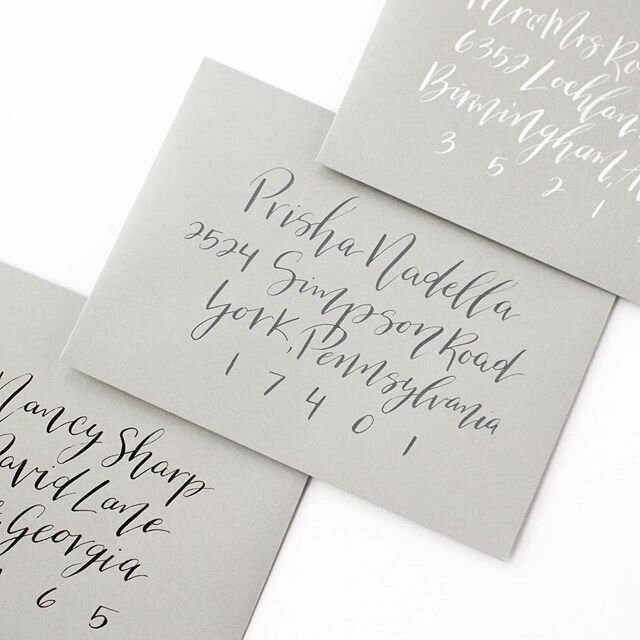 Mr & Mrs
6352 Lochlan
Birmingham,
3 5 2 1
Prisha Nadella
2524 Simpson Road
York, Pennsylvania
1 7 4 0 1
Nancy Sharp
David Lane
Georgia
6 5